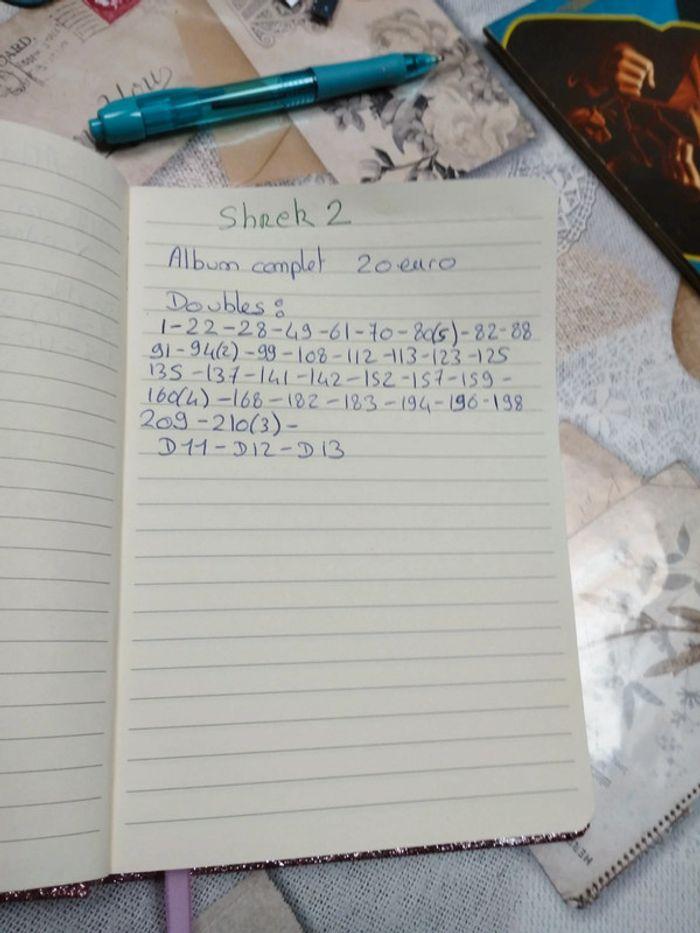 OARD.
You
Shrek 2
Album complet 20 euro
Doubles :
1-22-28-49-61-70-80(5)-82-88
91-94(2)-99-108-112-113-123-125
135-137-141-142-152-157-159-
160(4)-168-182-183-194-196-198
209-210(3)-
D11-D12-D13